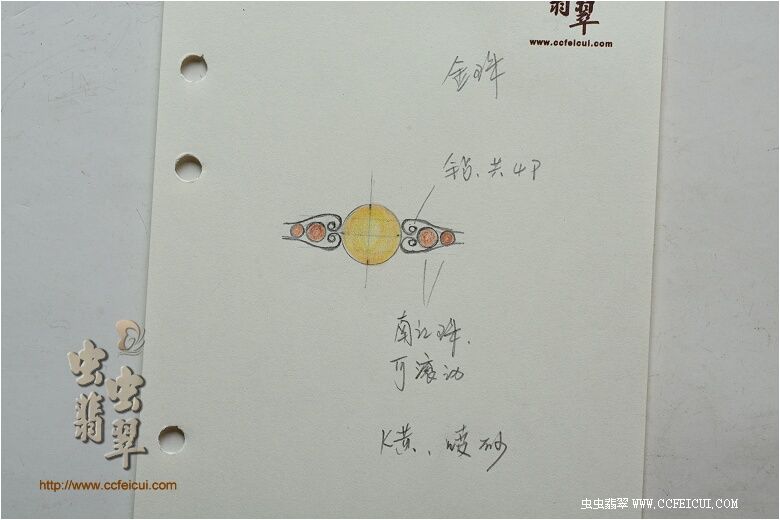 翡翠
www.ccfeicui.com
金珠
共4P
南红珠.
可滚动
K黄、喷砂
虫虫翡翠
http://www.ccfeicui.com
虫虫翡翠 WWW.CCFEICUI.COM